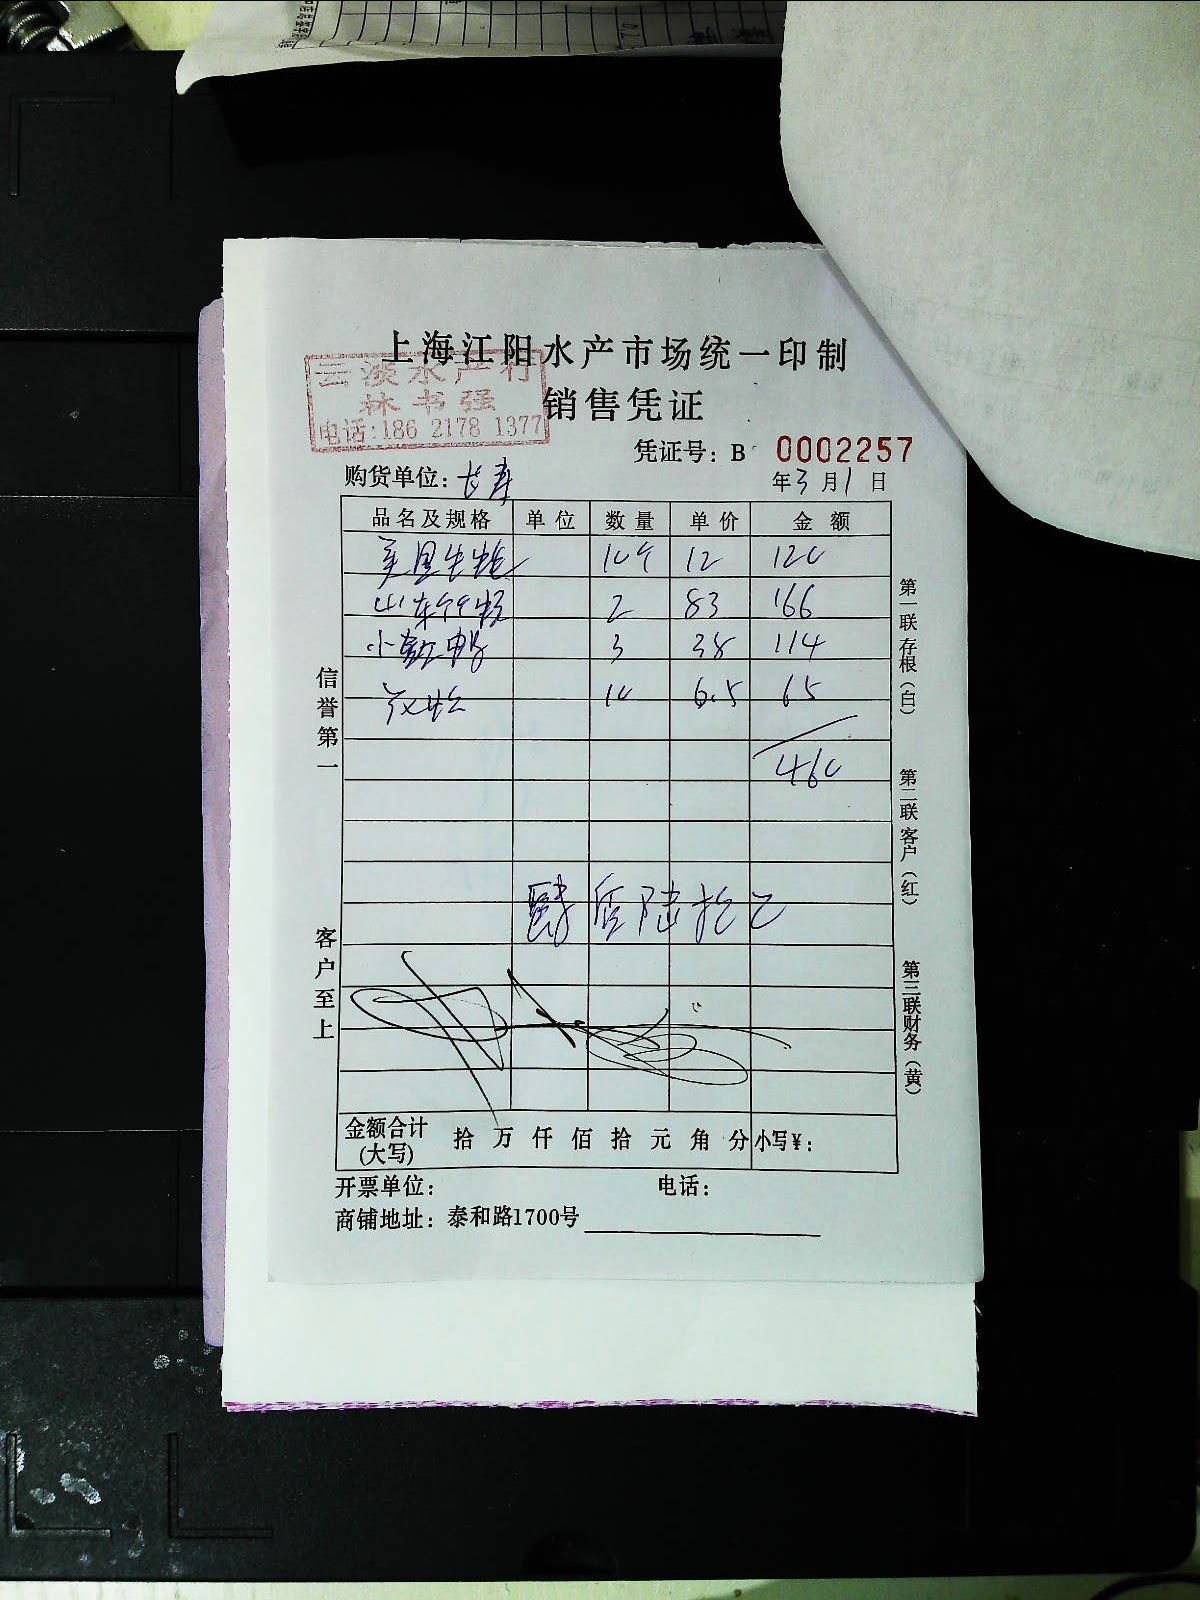 上海江阳水产市场统一印制
销售凭证
淡水产行
林书强
电话:186 2178 1377
凭证号: B 0002257
购货单位: 长寿
年3月1日
品名及规格 单位 数量 单价 金额
10个 12 120
山东 2 83 166
小 3 38 114
10 6.5 65
460
肆佰陆拾元
信誉第一
客户至上
第一联存根(白)
第二联客户(红)
第三联财务(黄)
金额合计(大写) 拾万仟佰拾元角分 小写¥:
开票单位: 电话:
商铺地址: 泰和路1700号